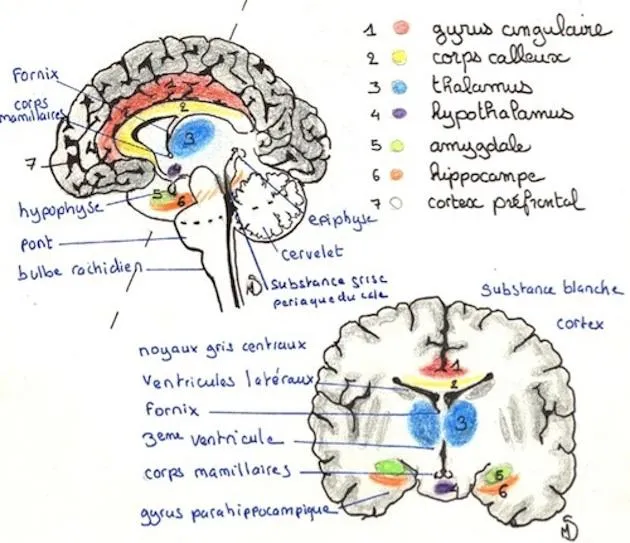 1 gyrus cingulaire
2 corps calleux
3 thalamus
4 hypothalamus
5 amygdale
6 hippocampe
7 cortex préfrontal
Fornix
corps
mamillaires
2
3
7
5
6
hypophyse
pont
bulbe rachidien
epiphyse
cervelet
substance grise
periaqueducale
substance blanche
cortex
noyaux gris centraux
ventricules latéraux
fornix
3eme ventricule
corps mamillaires
gyrus parahippocampique
1
2
3
4
5
6